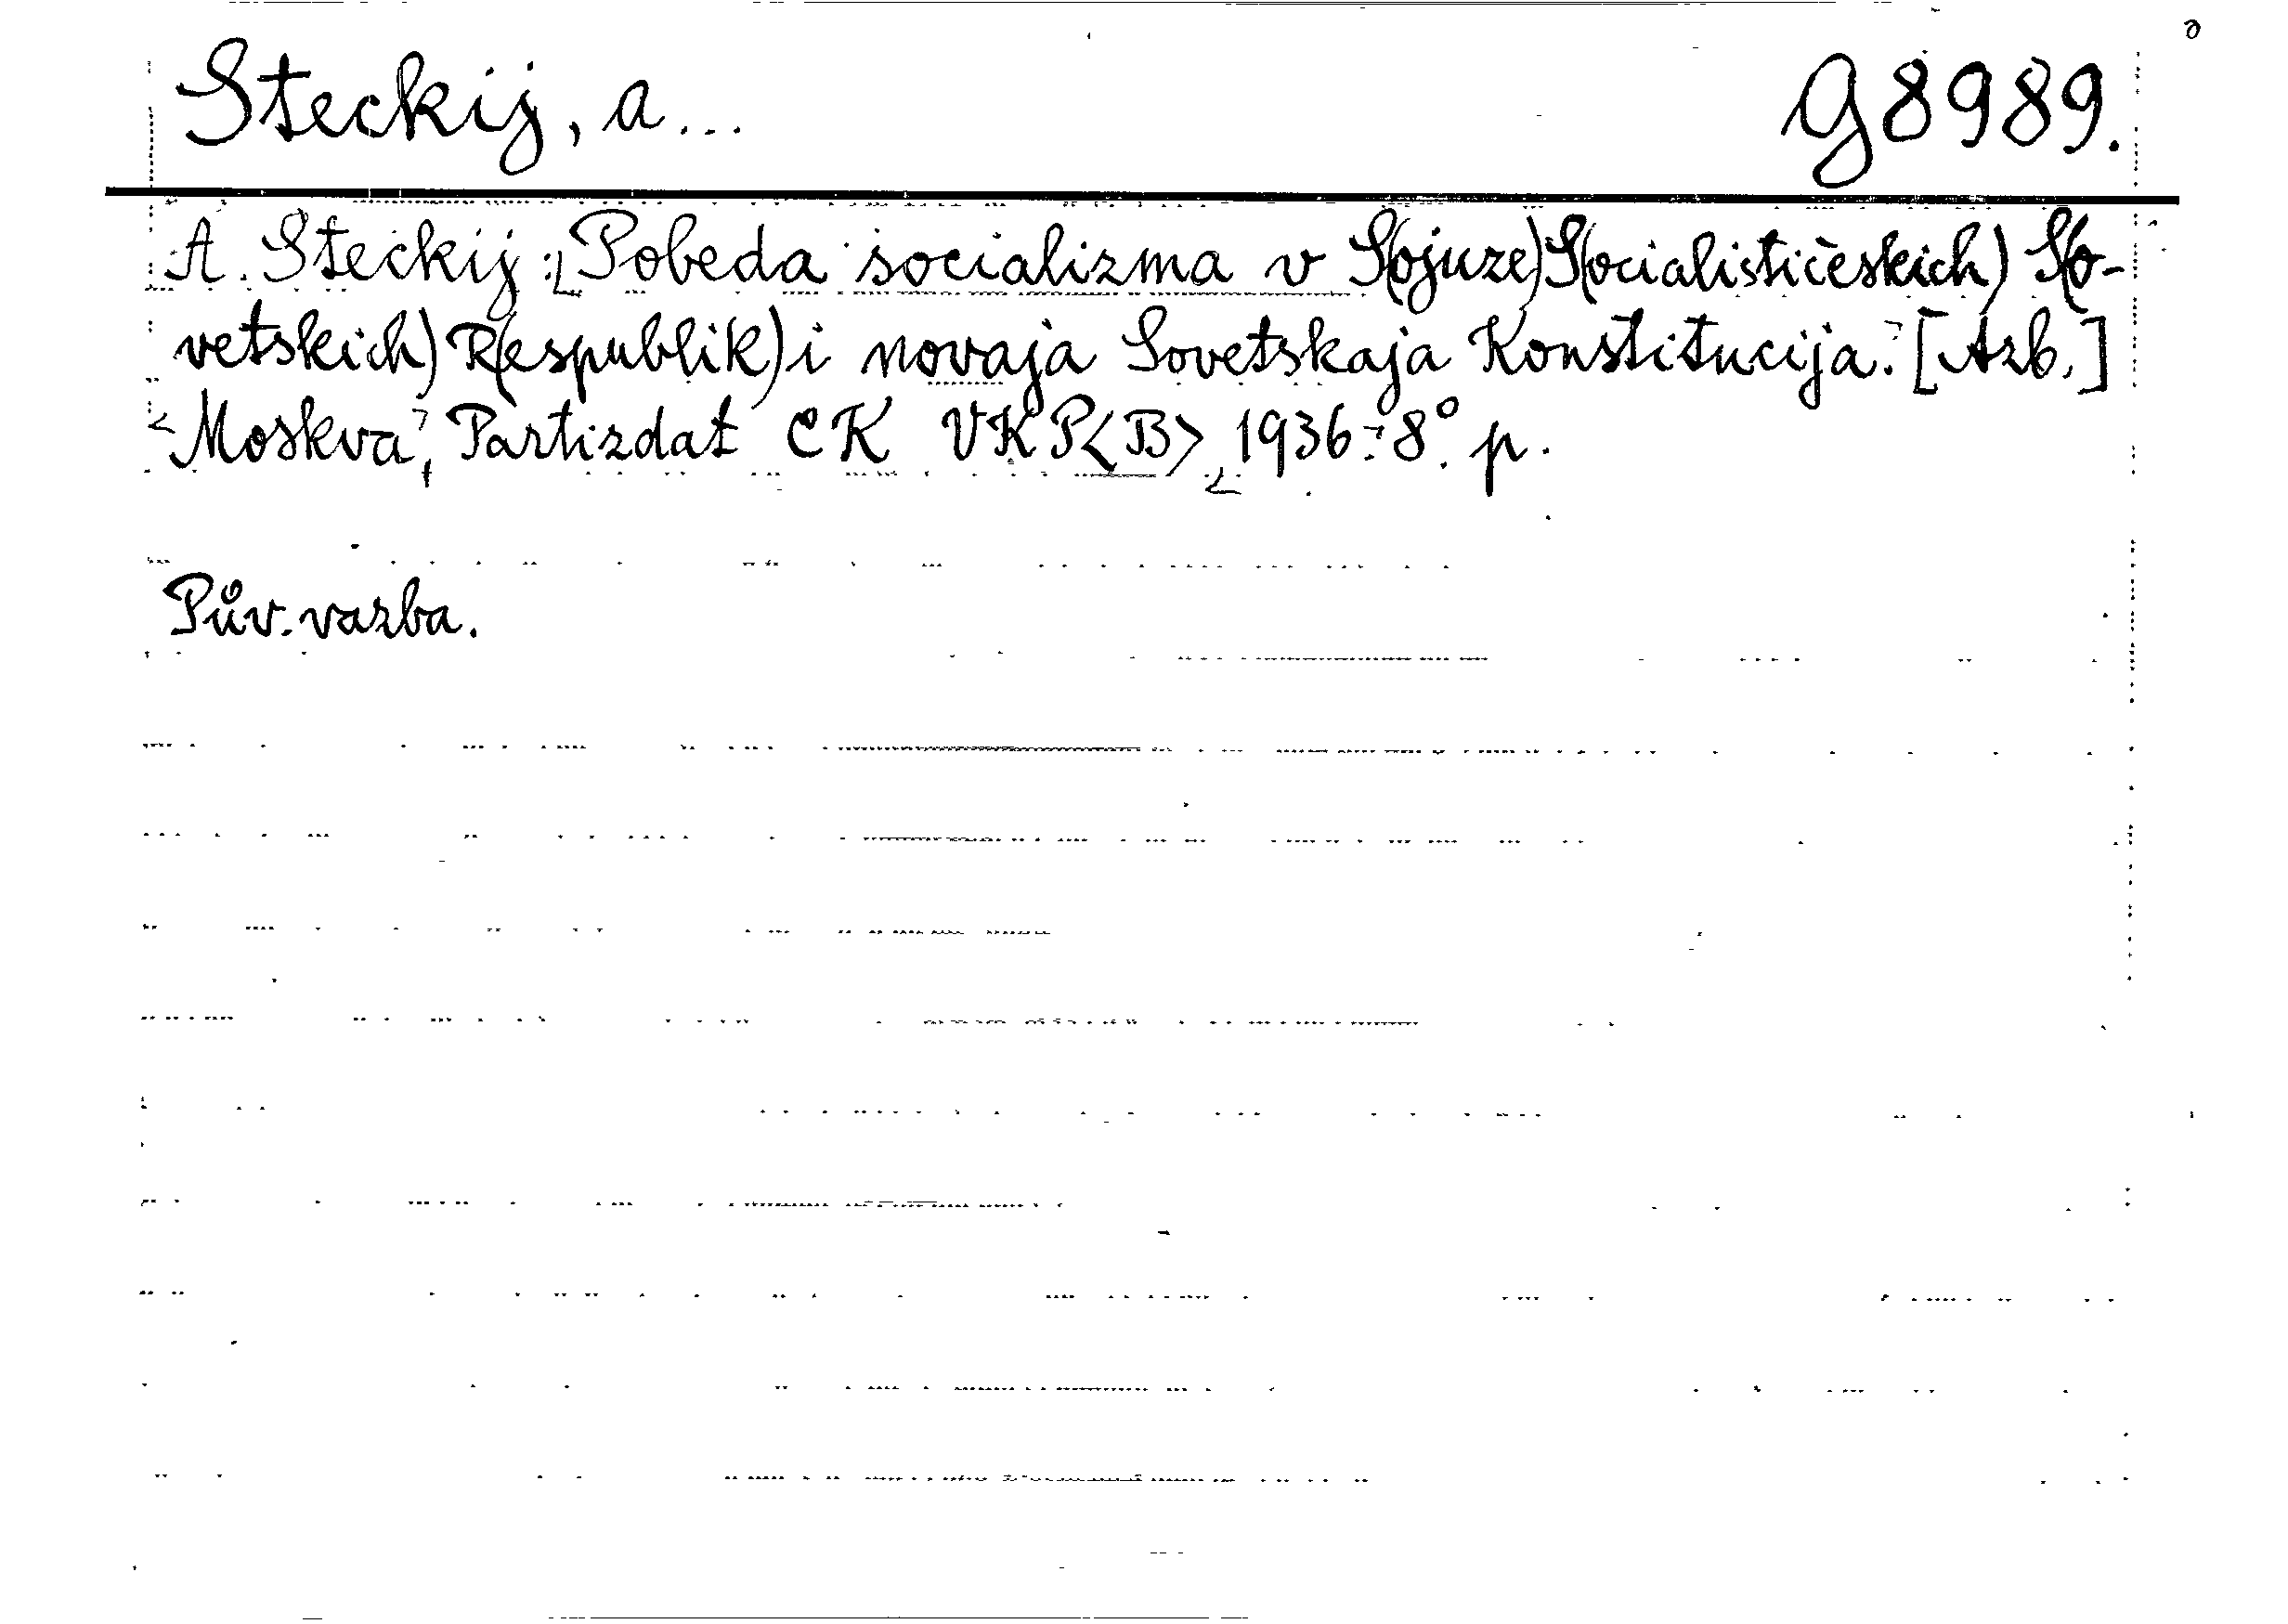 Steckij, A... G 8989.
A. Steckij: Pobeda socializma v S(ojuze) S(ocialističeskich) S(o-
vetskich) R(espublik) i novaja Sovetskaja Konstitucija. [Azb.]
Moskva, Partizdat CK VKP<B> 1936. 8°. p.
Pův. vazba.